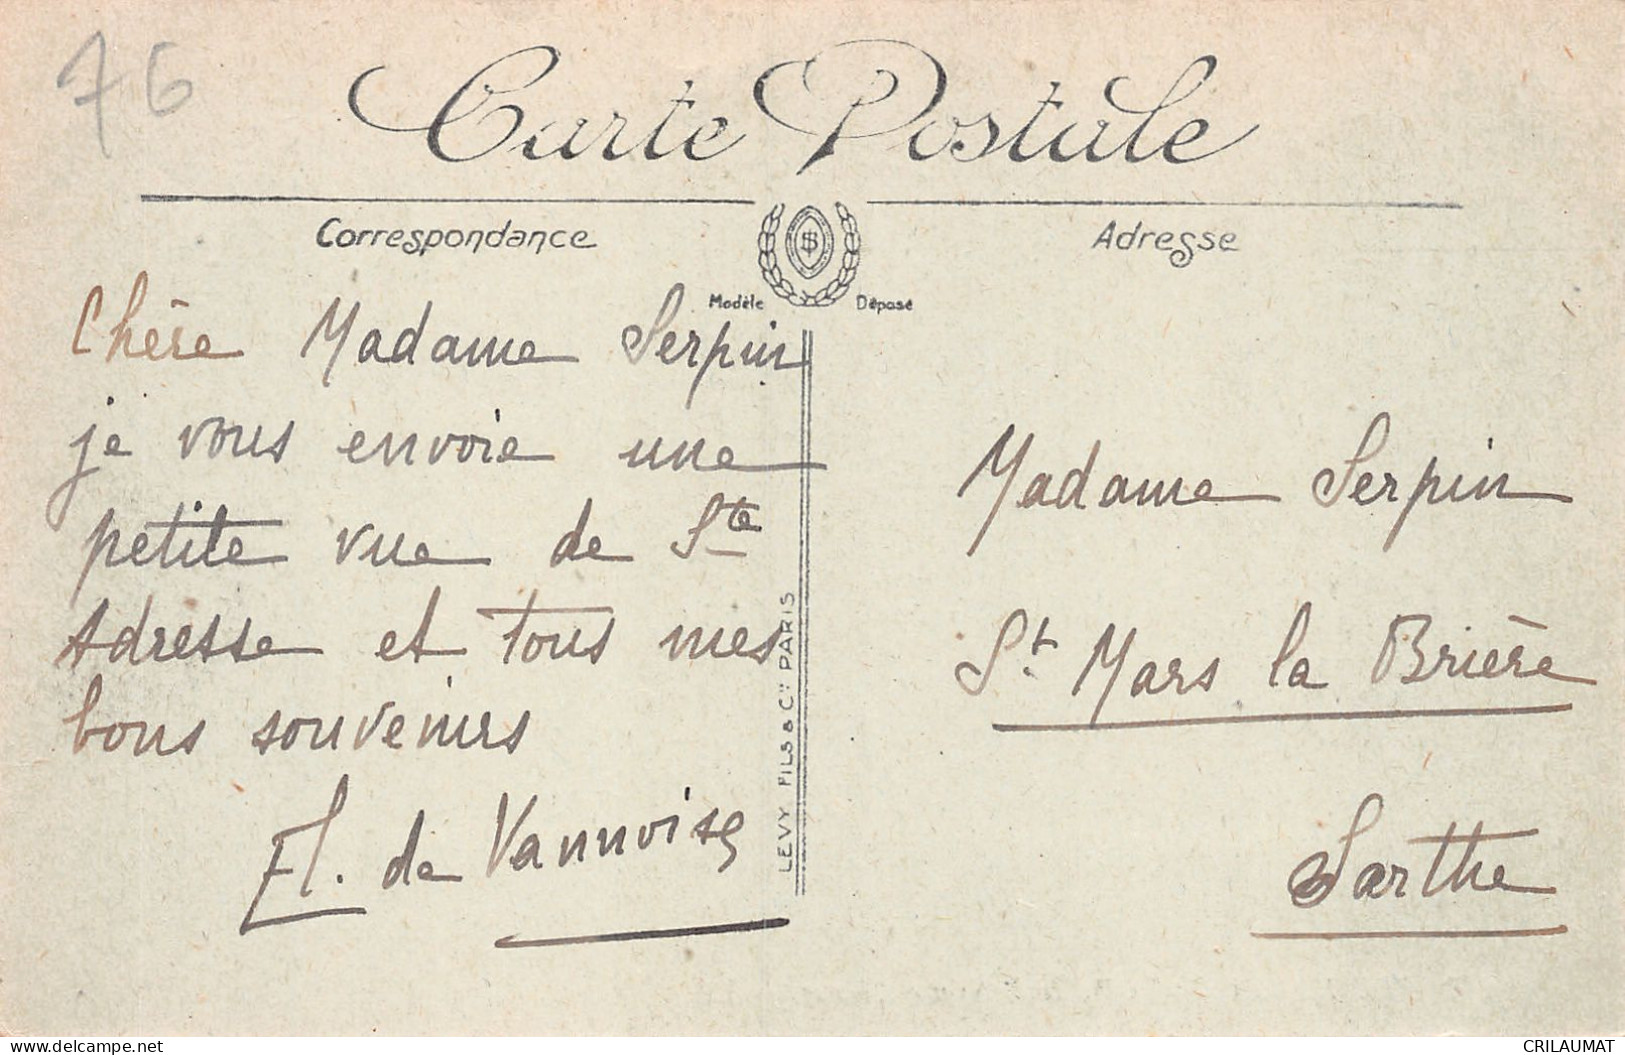 76
Carte Postale
Correspondance
Adresse
Modèle Déposé
Chère Madame Serpin
je vous envoie une
petite vue de Ste
Adresse et tous mes
bons souvenirs
El. de Vannoise
LEVY FILS & Cie PARIS
Madame Serpin
St. Mars la Brière
Sarthe
www.delcampe.net
CRILAUMAT